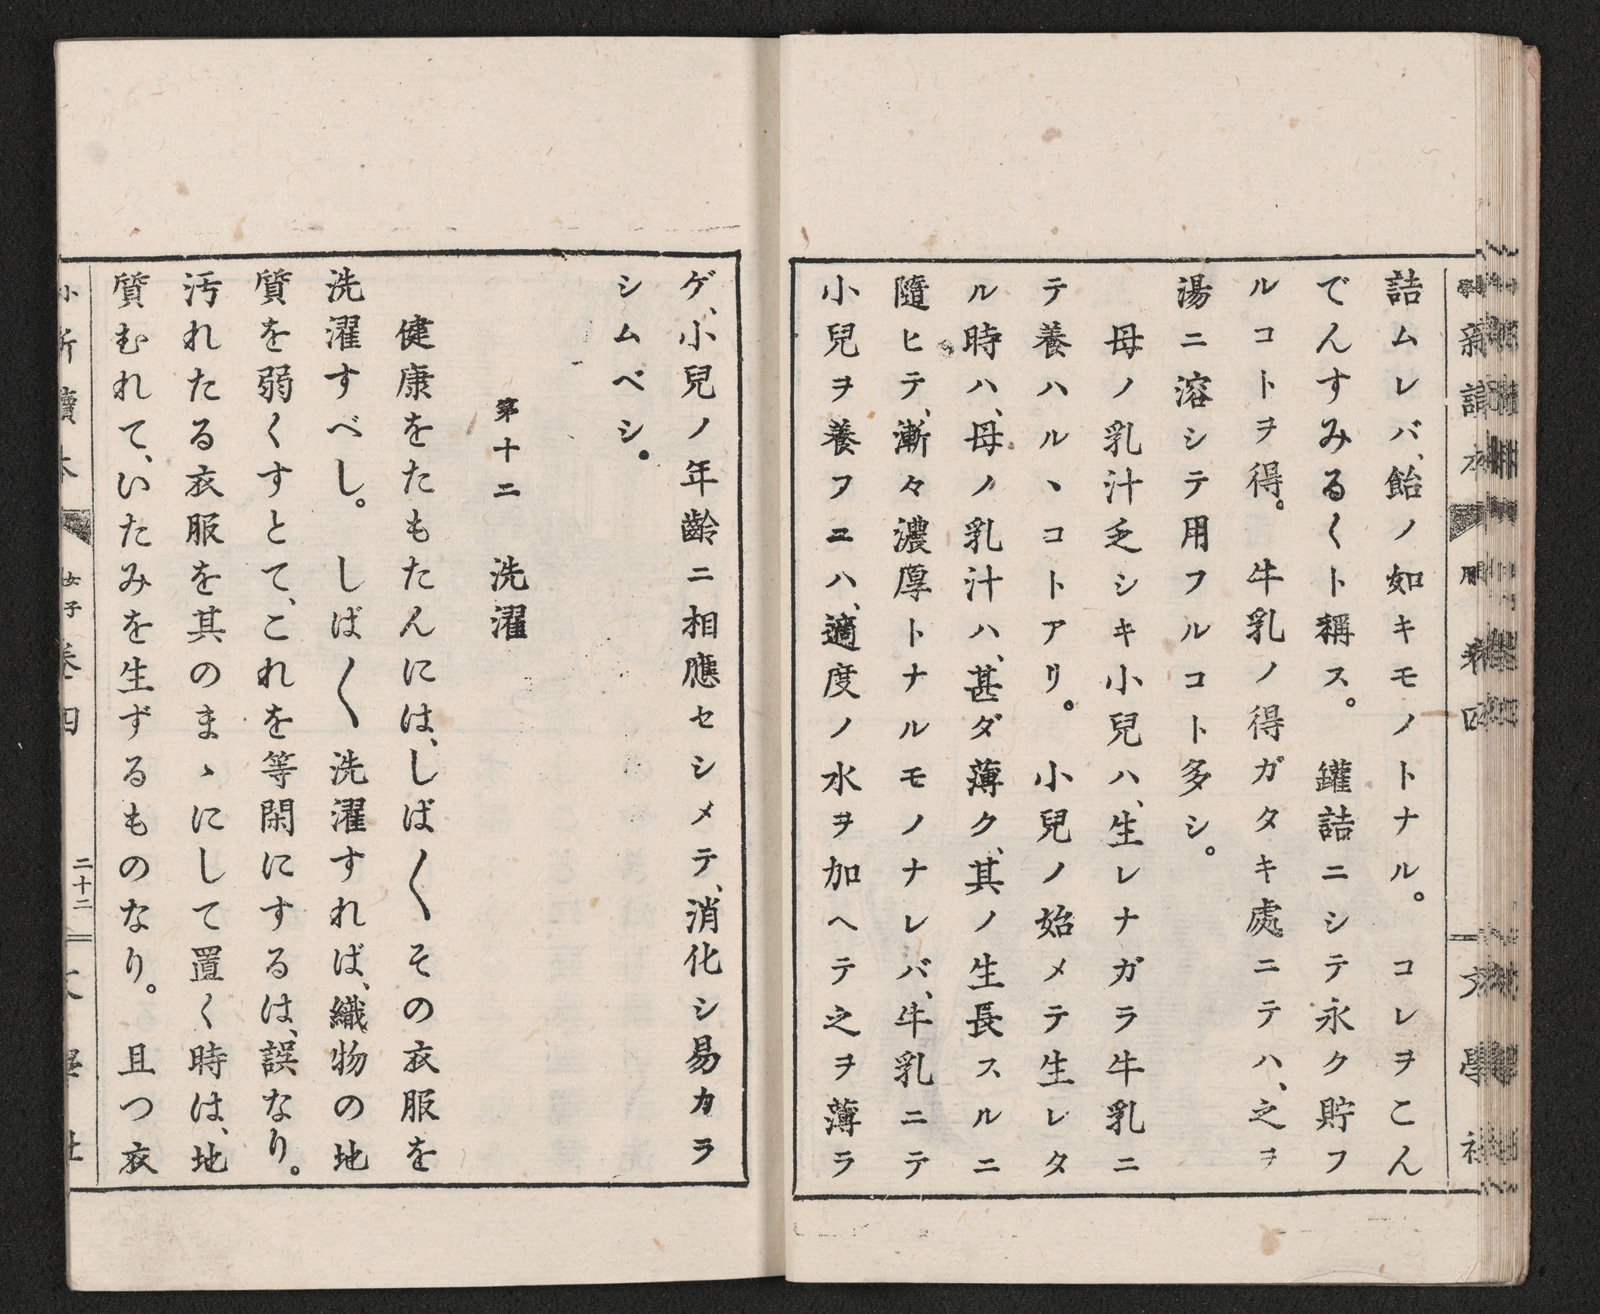 詰ムレバ、飴ノ如キモノトナル。　コレヲこん
でんすみるくト稱ス。　罐詰ニシテ永ク貯フ
ルコトヲ得。　牛乳ノ得ガタキ處ニテハ、之ヲ
湯ニ溶シテ用フルコト多シ。
母ノ乳汁乏シキ小兒ハ、生レナガラ牛乳ニ
テ養ハルヽコトアリ。　小兒ノ始メテ生レタ
ル時ハ、母ノ乳汁ハ、甚ダ薄ク、其ノ生長スルニ
隨ヒテ、漸々濃厚トナルモノナレバ、牛乳ニテ
小兒ヲ養フニハ、適度ノ水ヲ加ヘテ之ヲ薄ラ
ゲ、小兒ノ年齡ニ相應セシメテ、消化シ易カラ
シムベシ。
第十二　洗濯
健康をたもたんには、しば〱その衣服を
洗濯すべし。　しば〱洗濯すれば、織物の地
質を弱くすとて、これを等閑にするは、誤なり。
汚れたる衣服を其のまゝにして置く時は、地
質むれて、いたみを生ずるものなり。　且つ衣
女子 卷四
二十二